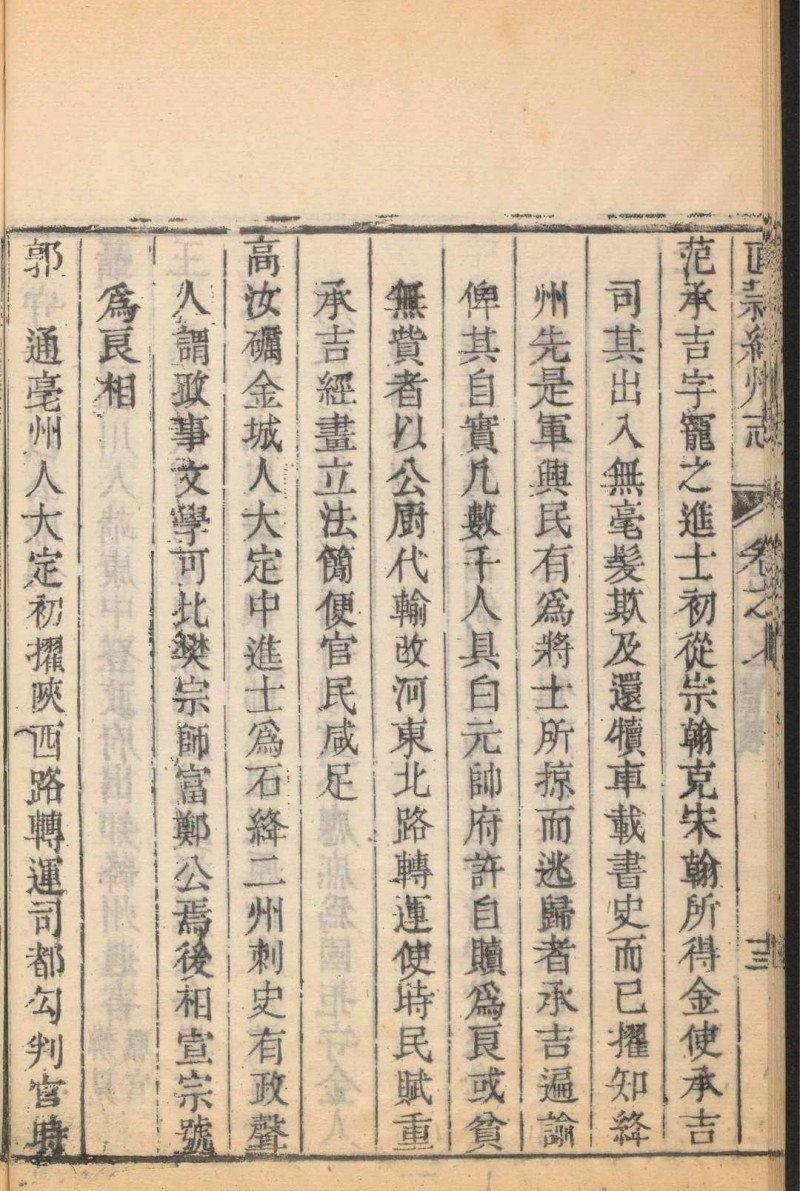 直隸絳州志 卷之 十三
范承吉字寵之進士初從宗翰克宋翰所得金使承吉
司其出入無毫髮欺及還犢車載書史而已擢知絳
州先是軍興民有為將士所掠而逃歸者承吉遍諭
俾其自實凡數千人具白元帥府許自贖為良或貧
無貲者以公廚代輸改河東北路轉運使時民賦重
承吉經畫立法簡便官民咸足
高汝礪金城人大定中進士為石絳二州刺史有政聲
人謂政事文學可比樊宗師富鄭公焉後相宣宗號
為良相
郭 通亳州人大定初擢陝西路轉運司都勾判官時